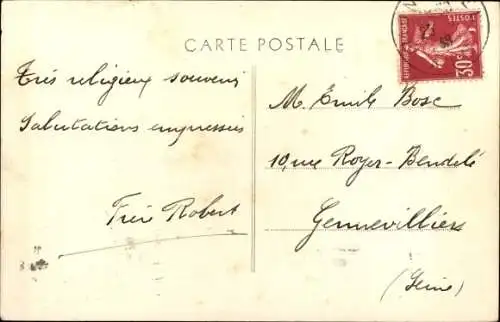 CARTE POSTALE
Très religieux souvenir
Salutations empressées
Frère Robert
REPUBLIQUE FRANÇAISE
POSTES
30c
M. Émile Bosc
10, rue Royer-Bendelé
Gennevilliers
(Seine)